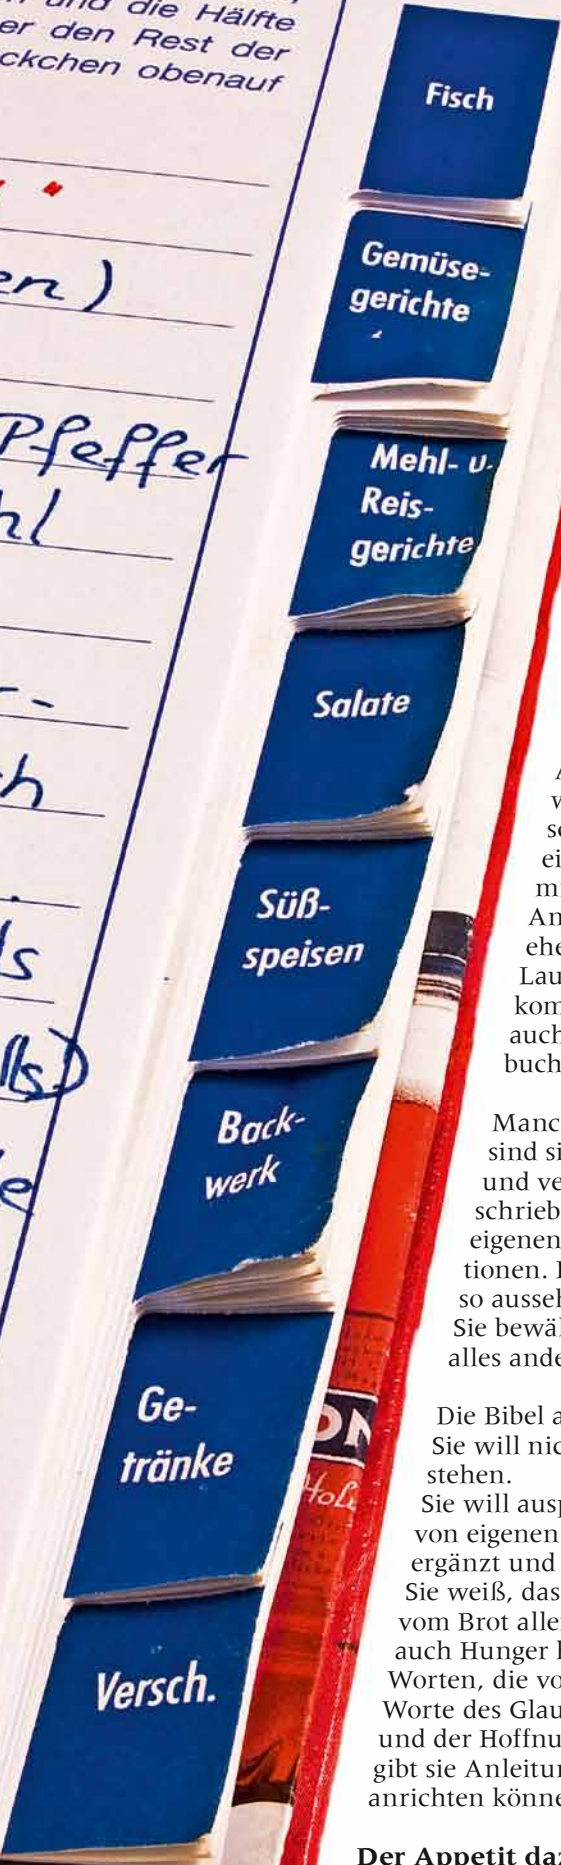 und die Hälfte
er den Rest der
ckchen obenauf
"
en)
Pfeffer
hl
ch
ls
lls)
e
Fisch
Gemüse-
gerichte
Mehl- u.
Reis-
gerichte
Salate
Süß-
speisen
Back-
werk
Ge-
tränke
Versch.
ON
A
w
se
ei
mi
An
ehe
Lau
kom
auch
buch
Manc
sind si
und ve
schrieb
eigenen
tionen.
so ausseh
Sie bewäh
alles ande
Die Bibel a
Sie will nic
stehen.
Sie will ausp
von eigenen
ergänzt und
Sie weiß, das
vom Brot alle
auch Hunger
Worten, die vo
Worte des Glau
und der Hoffnu
gibt sie Anleitu
anrichten könne
Der Appetit daz